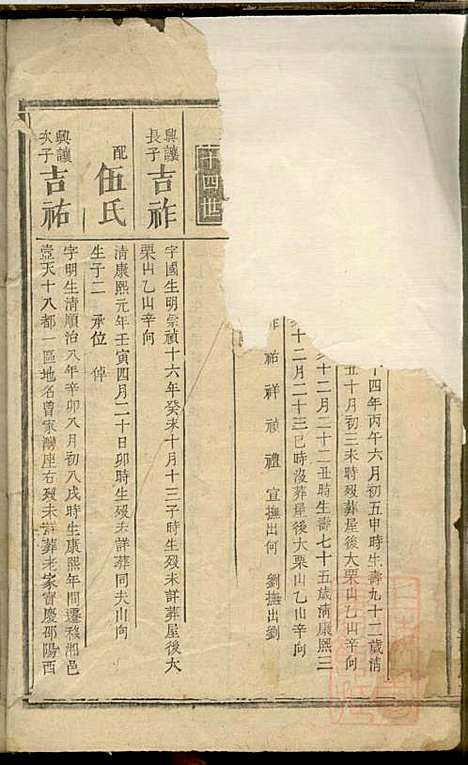 十四年丙午六月初五申時生壽九十二歲清
丑十月初三未時歿葬屋後大栗山乙山
十二月二十二丑時生壽七十五歲清康熙三
十二月二十三巳時沒葬屋後大栗山乙山辛向
祚 祐 祥 禎 禮 宣撫出何 劉撫出劉
十四世
興讓長子 吉祚
字國生明崇禎十六年癸未十月十三子時生歿未詳葬屋後大
栗山乙山辛向
配 伍氏
清康熙元年壬寅四月二十日卯時生歿未詳葬同夫山向
生子二 承位 倬
興讓次子 吉祐
字明生清順治八年辛卯八月初八戌時生康熙年間遷移湘邑
壹天十八都一區地名曾家灣座右歿未詳葬老家寶慶邵陽西